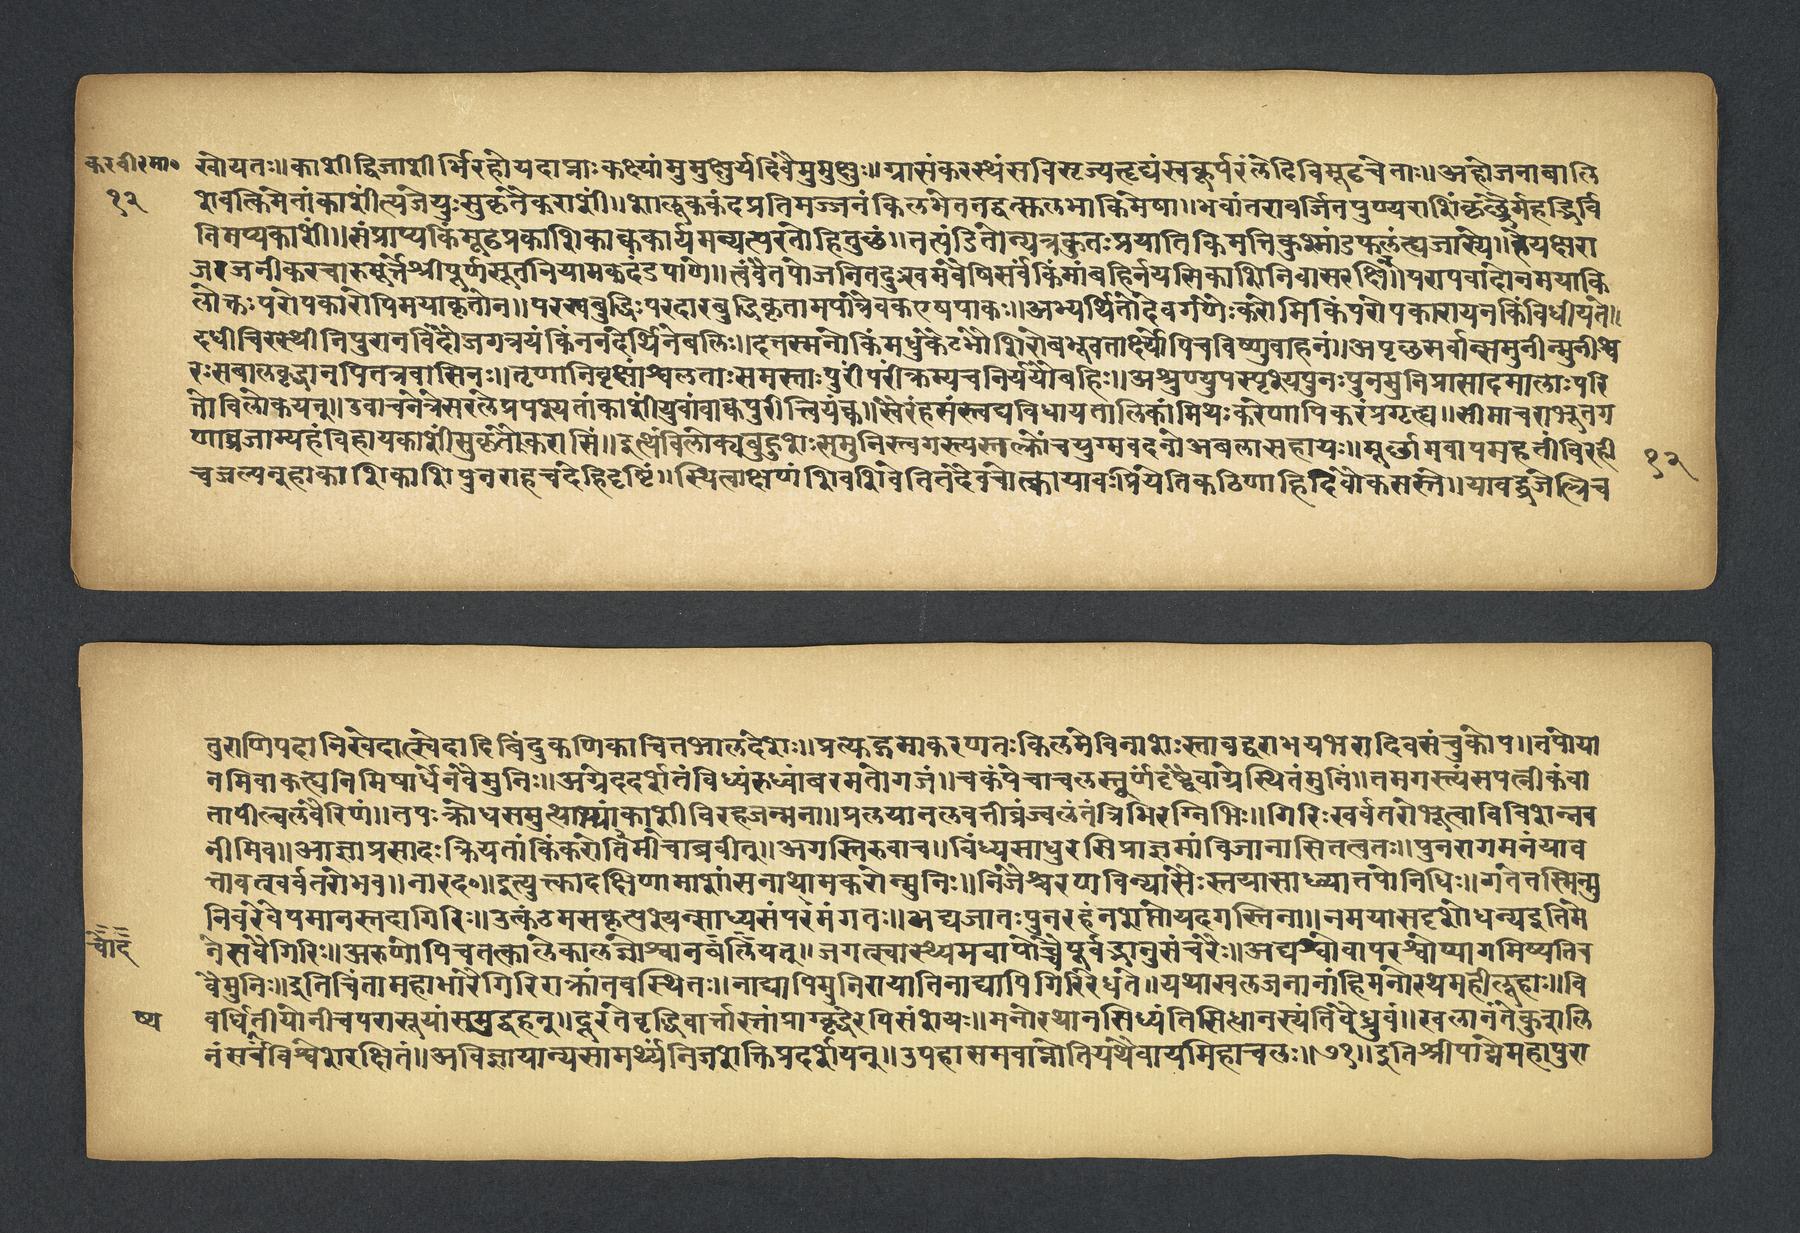 करवीरमा०
१२
खोयतः॥काशीद्विजाशीर्भिरहोयदाप्ताःकक्ष्यांमुमुक्षुर्यदिवैमुमुक्षुः॥ग्रासंकरस्थंसविसृज्यहृद्यंस्वकूर्परंलेढिविमूढचेताः॥अहोजनाबालि
शवत्किमेनांकाशींत्यजेयुःसुकृतैकराशीं॥शालूककंदप्रतिमज्जनंकिलभेततद्वत्सुलभाकिमेषा॥भवांतरावर्जितपुण्यराशिंकृछ्रैर्महद्भिर्वि
निमप्यकाशीं॥संप्राप्यकिंमूढप्रकाशिकाकार्यमन्यत्परतोहितुछं॥नत्पंडितोन्यत्रकुतःप्रयातिकिमत्तिकुश्मांडफलंत्प्यजास्ये॥
जरजनीकरचारुमूर्त्तेश्रीपूर्णसूतनियामकदंडपाणे॥त्वंवैतपोजनितदुःखमवैषिसर्वंकिंमांबहिर्नयसिकाशिनिवासरक्षिन्॥परापवादोनमयाकि
लोक्तःपरोपकारोपिमयाकृतोन॥परस्वबुद्धिःपरदारबुद्धिकृतामपीत्रैवकएषपाकः॥अभ्यर्थितोदेवगणैःकरोमिकिंपरोपकारायनकिंविधीयते॥
दधीचिरस्थीनिपुरानविंदौजगत्रयंकिंनददेर्थिनेबलिः॥दत्तस्मनोकिंमधुकैटभौशिरोबभूवतार्क्ष्योपिचविष्णुवाहनं॥अपृछसर्वान्समुनीन्मुनीश्व
रःसबालवृद्धानपितत्रवासिनः॥तृणानिवृक्षांश्चलताःसमस्ताःपुरींपरीक्रम्यचनिर्ययौबहिः॥अश्रुण्युपस्पृश्यपुनःपुनमुनिप्रासादमालाःपरि
तोविलोकयन्॥उवाचनेत्रेसरलेप्रपश्यतांकाशींयुवांवाक्वपुरीत्वियंक्व॥स्वैरंहसंत्त्वद्यविधायतालिकांमिथःकरेणापिकरंप्रगृह्य॥सीमाचराभूतग
णाव्रजाम्यहंविहायकाशींसुकृतैकरासिं॥इत्थंविलोक्यबहुशःसमुनिस्त्वगस्त्यस्तत्क्रौंचयुग्मवदनोअबलासहायः॥मूर्छामवापमहतींविरही
चजल्पन्हाकाशिकाशिपुनराहचदेहिदृष्टिं॥स्थित्वाक्षणंशिवशिवेतितदैवचोत्क्कायावःप्रियेतिकठिणाहिदिवौकसस्ते॥यावद्व्रजेत्त्रिच
१२
तुराणिपदानिखेदात्स्वेदादिबिंदुकणिकाचितभालदेशः॥प्रत्यकह्नमाकरणतःकिलमेविनाशःस्तावद्वराभयभरादिवसंचुकोप॥तपोया
नमिवाकत्प्यनिमिषार्धेनवैमुनिः॥अग्रेददर्शतंविंध्यंरुध्वांबरमतोगजं॥चकंपेचाचलस्तूर्णंदृष्ट्वैवाग्रेस्थितंमुनिं॥तमगस्त्यंसपत्नीकंवा
तापील्वलवैरिणं॥तपःक्रोधसमुत्थाभ्यांकाशीविरहजन्मना॥प्रलयानलवत्तीव्रंज्वलंतंत्रिभिरग्निभिः॥गिरिःखर्वतरोभूत्वाविविशन्नव
नीमिव॥आज्ञाप्रसादःक्रियतांकिंकरोतिमांचाब्रवीत्॥अगस्तिरुवाच॥विंध्यसाधुरसिप्राज्ञमांविजानासितत्वतः॥पुनरागमनंयाव
त्तावत्खर्वतरोभव॥नारद०॥इत्युक्त्वादक्षिणामाशांसनाथामकरोन्मुनिः॥निजैश्चरणविन्यासैःस्तयासाध्यातपोनिधिः॥गतेतस्मिन्मु
निवरेवेपमानस्तदागिरिः॥उत्कंठमसकृत्पुश्यन्साध्यसंपरमंगतः॥अद्यजातःपुनरहंनशप्तोयदगस्तिना॥नमयासदृशोधन्यइतिमे
नेसवैगिरिः॥अरुणोपिचतत्कालेकालज्ञोश्वानवलियत्॥जगत्स्वास्थ्यमवापोच्चैःपूर्ववद्भानुसंचरैः॥अद्यश्वोवापरश्वोप्यागमिष्यति
वैमुनिः॥इतिचिंतामहाभारैगिरिराक्रांतवस्थितः॥नाद्यापिमुनिरायातिनाद्यापिगिरिरेधते॥यथाखलजनानांहिमनोरथमहीरुहाः॥वि
वर्धितीयोनीचपरासूयांसमुद्वहन्॥दूरंतेवृद्धिवार्त्तास्तांप्राग्वृद्धेरपिसंशयः॥मनोरथानसिध्यंतिसिधानस्यंतिवैध्रुवं॥खलानंतेकुत्रालि
नंसर्वंविश्वेशरक्षितं॥अविज्ञायान्यसामर्थ्यंनिजशक्तिंप्रदर्शयन्॥उपहासमवाप्नोतियथैवायमिहाचलः॥७१॥इतिश्रीपाद्मेमहापुरा
ष्य